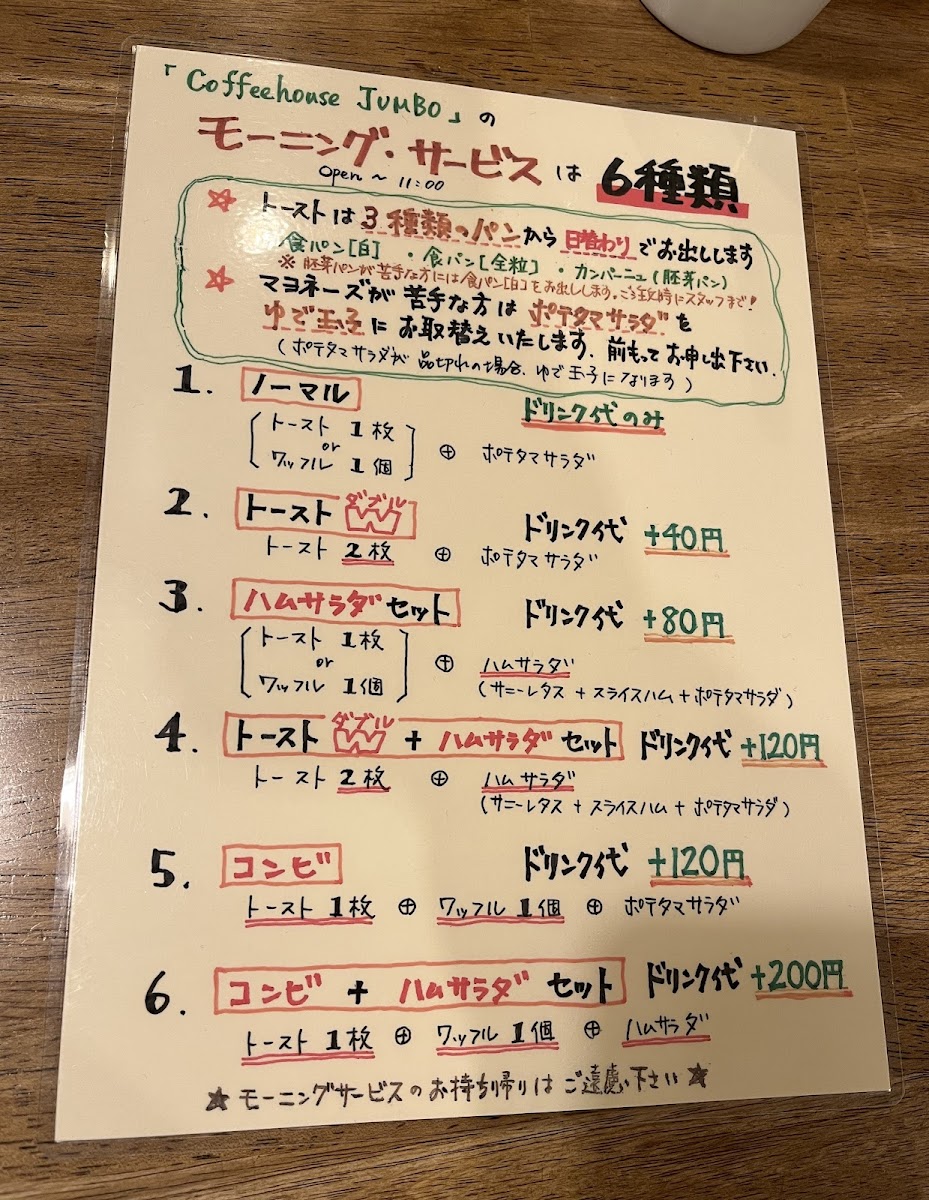 「Coffeehouse JUMBO」の
モーニング・サービスは 6種類
Open ~ 11:00
☆ トーストは3種類のパンから日替わりでお出しします
食パン[白]・食パン[全粒]・カンパーニュ(胚芽パン)
※胚芽パンが苦手な方には食パン[白]をお出しします。ご注文時にスタッフまで!
☆ マヨネーズが苦手な方はポテタマサラダを
ゆで玉子にお取替えいたします、前もってお申し出下さい.
(ポテタマサラダが品切れの場合、ゆで玉子になります)
1. ノーマル ドリンク代のみ
トースト 1枚
or
ワッフル 1個
⊕ ポテタマサラダ
2. トースト ダブル W ドリンク代 +40円
トースト 2枚 ⊕ ポテタマサラダ
3. ハムサラダセット ドリンク代 +80円
トースト 1枚
or
ワッフル 1個
⊕ ハムサラダ
(サニーレタス+スライスハム+ポテタマサラダ)
4. トースト ダブル W + ハムサラダセット ドリンク代 +120円
トースト 2枚 ⊕ ハムサラダ
(サニーレタス+スライスハム+ポテタマサラダ)
5. コンビ ドリンク代 +120円
トースト 1枚 ⊕ ワッフル 1個 ⊕ ポテタマサラダ
6. コンビ + ハムサラダ セット ドリンク代 +200円
トースト 1枚 ⊕ ワッフル 1個 ⊕ ハムサラダ
☆モーニングサービスのお持ち帰りはご遠慮い下さい☆